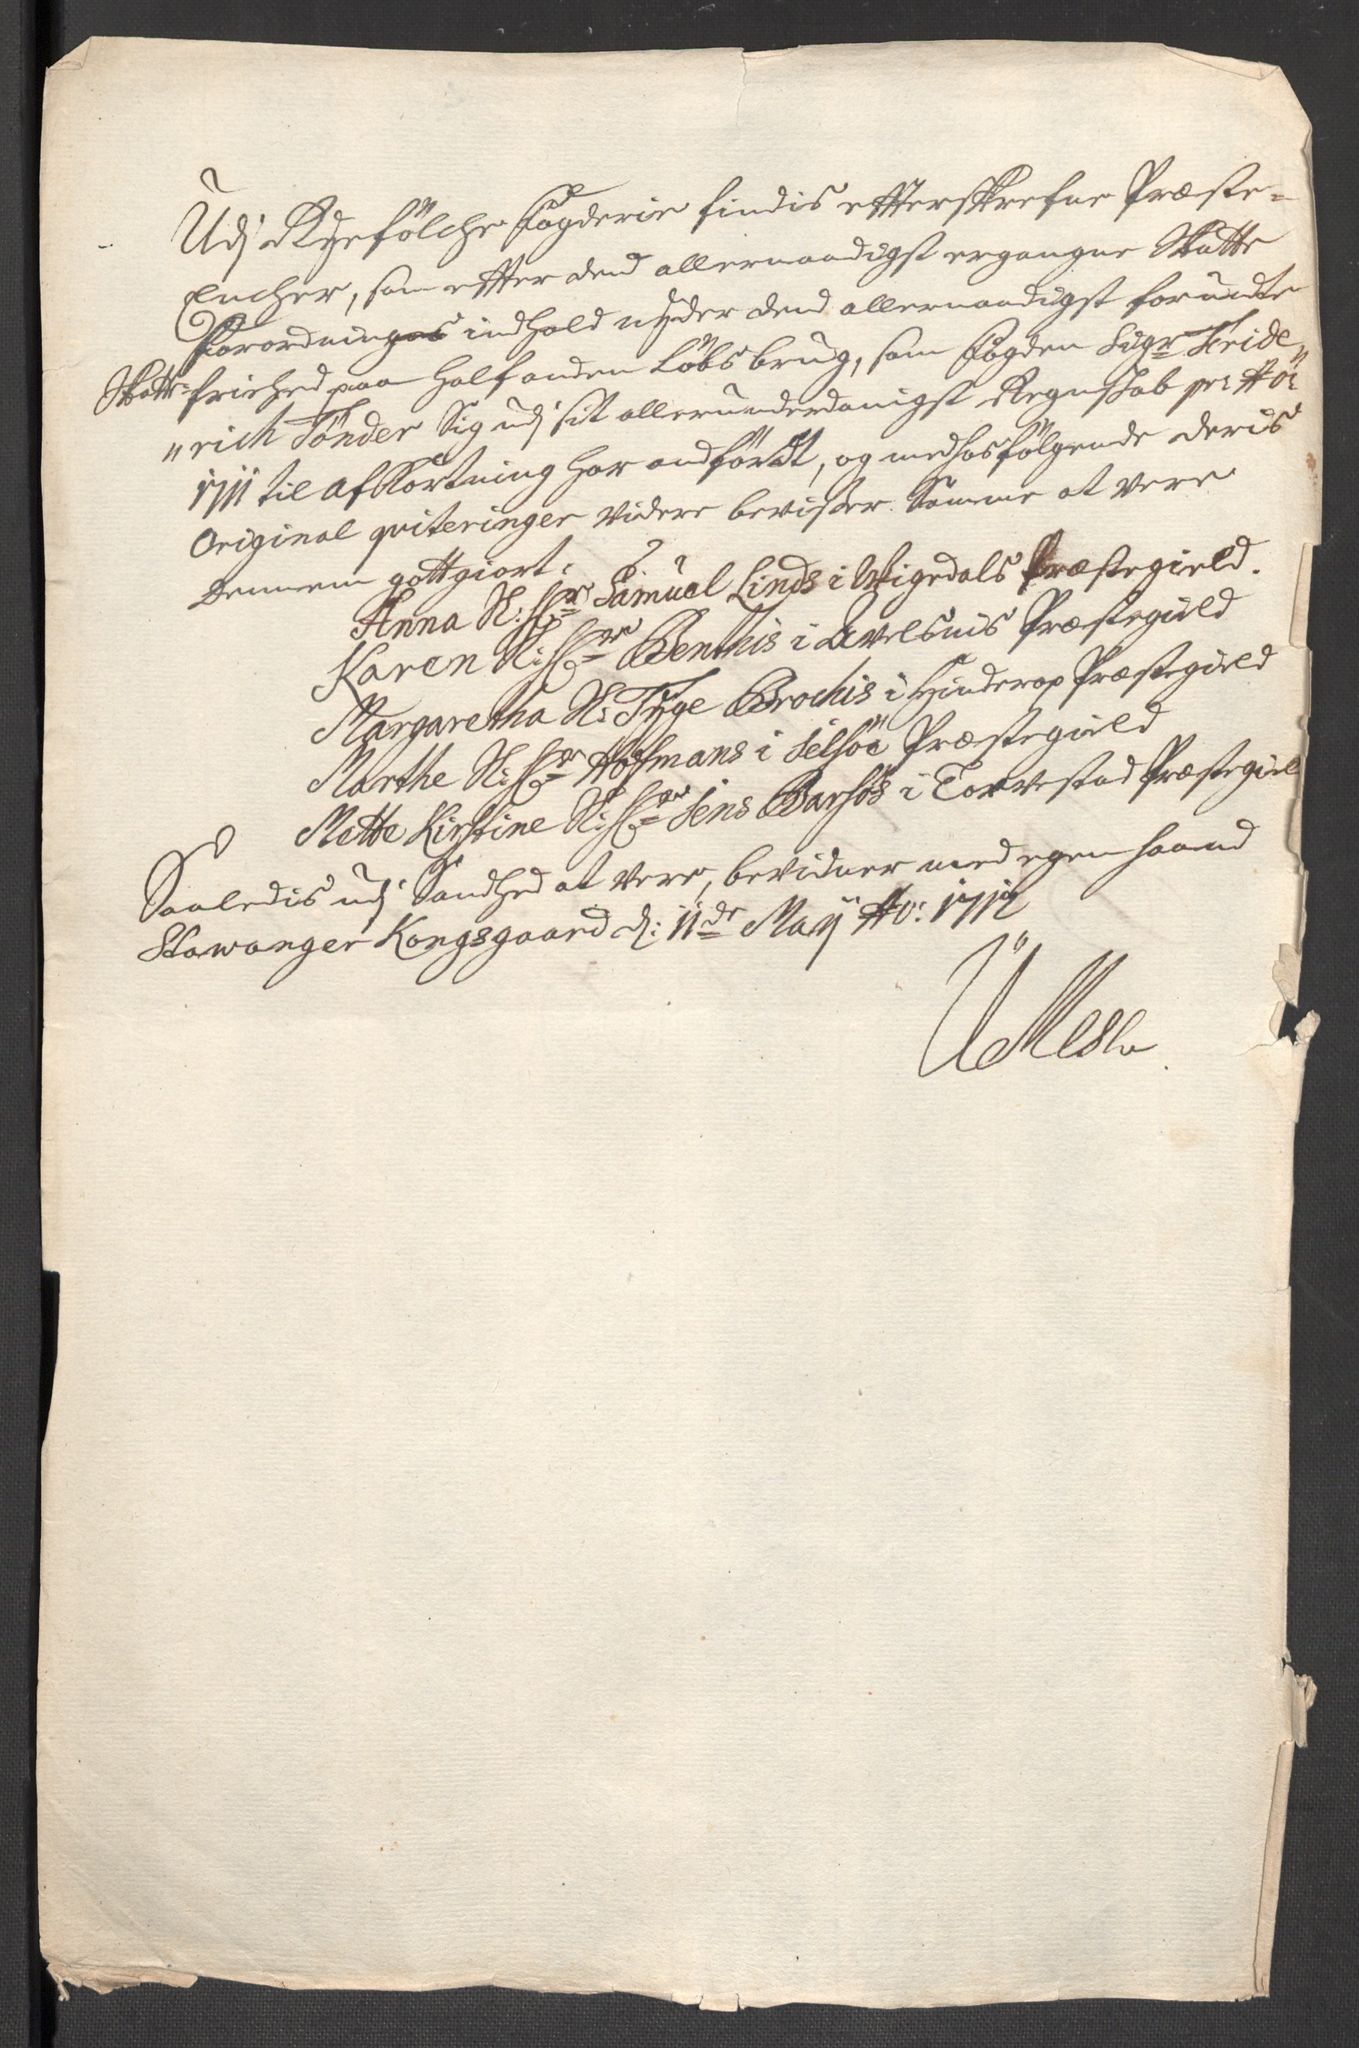 Udj Ryefölche Fogderie findis effterskrefne Præste-
Encher, som effter dend allernaadigst ergangne Skatte
Forordnings indhold nyder dend allernaadigst forundte
Skatte friehed paa halfanden Löbs brug, som Fogden Sigr Fride„
„rich Tönder Sig udj sit allerunderdanigst Regnskab pr: Ao:
1711 til afkortning har andfördt, og medhosfölgende deris
Original qviteringer videre bevisser Samme at vere
Dennem gottgiort:
Anna Sl: Hr Samuel Linds i Wigedals Præstegield.
Karen Sl: Hr Benthis i Avelsnis Præstegield
Margaretha Sl: Tyge Brochis i Hinderop Præstegield
Marthe Sl: Hr Hofmans i Jelsöe Præstegield
Mette Kirstine Sl: Hr Jens Barhos i Torvestad Præstegiel
Saaledis udj Sandhed at vere, bevidner med egen haand
Stawanger Kongsgaard d: 11de Maij Ao: 1712